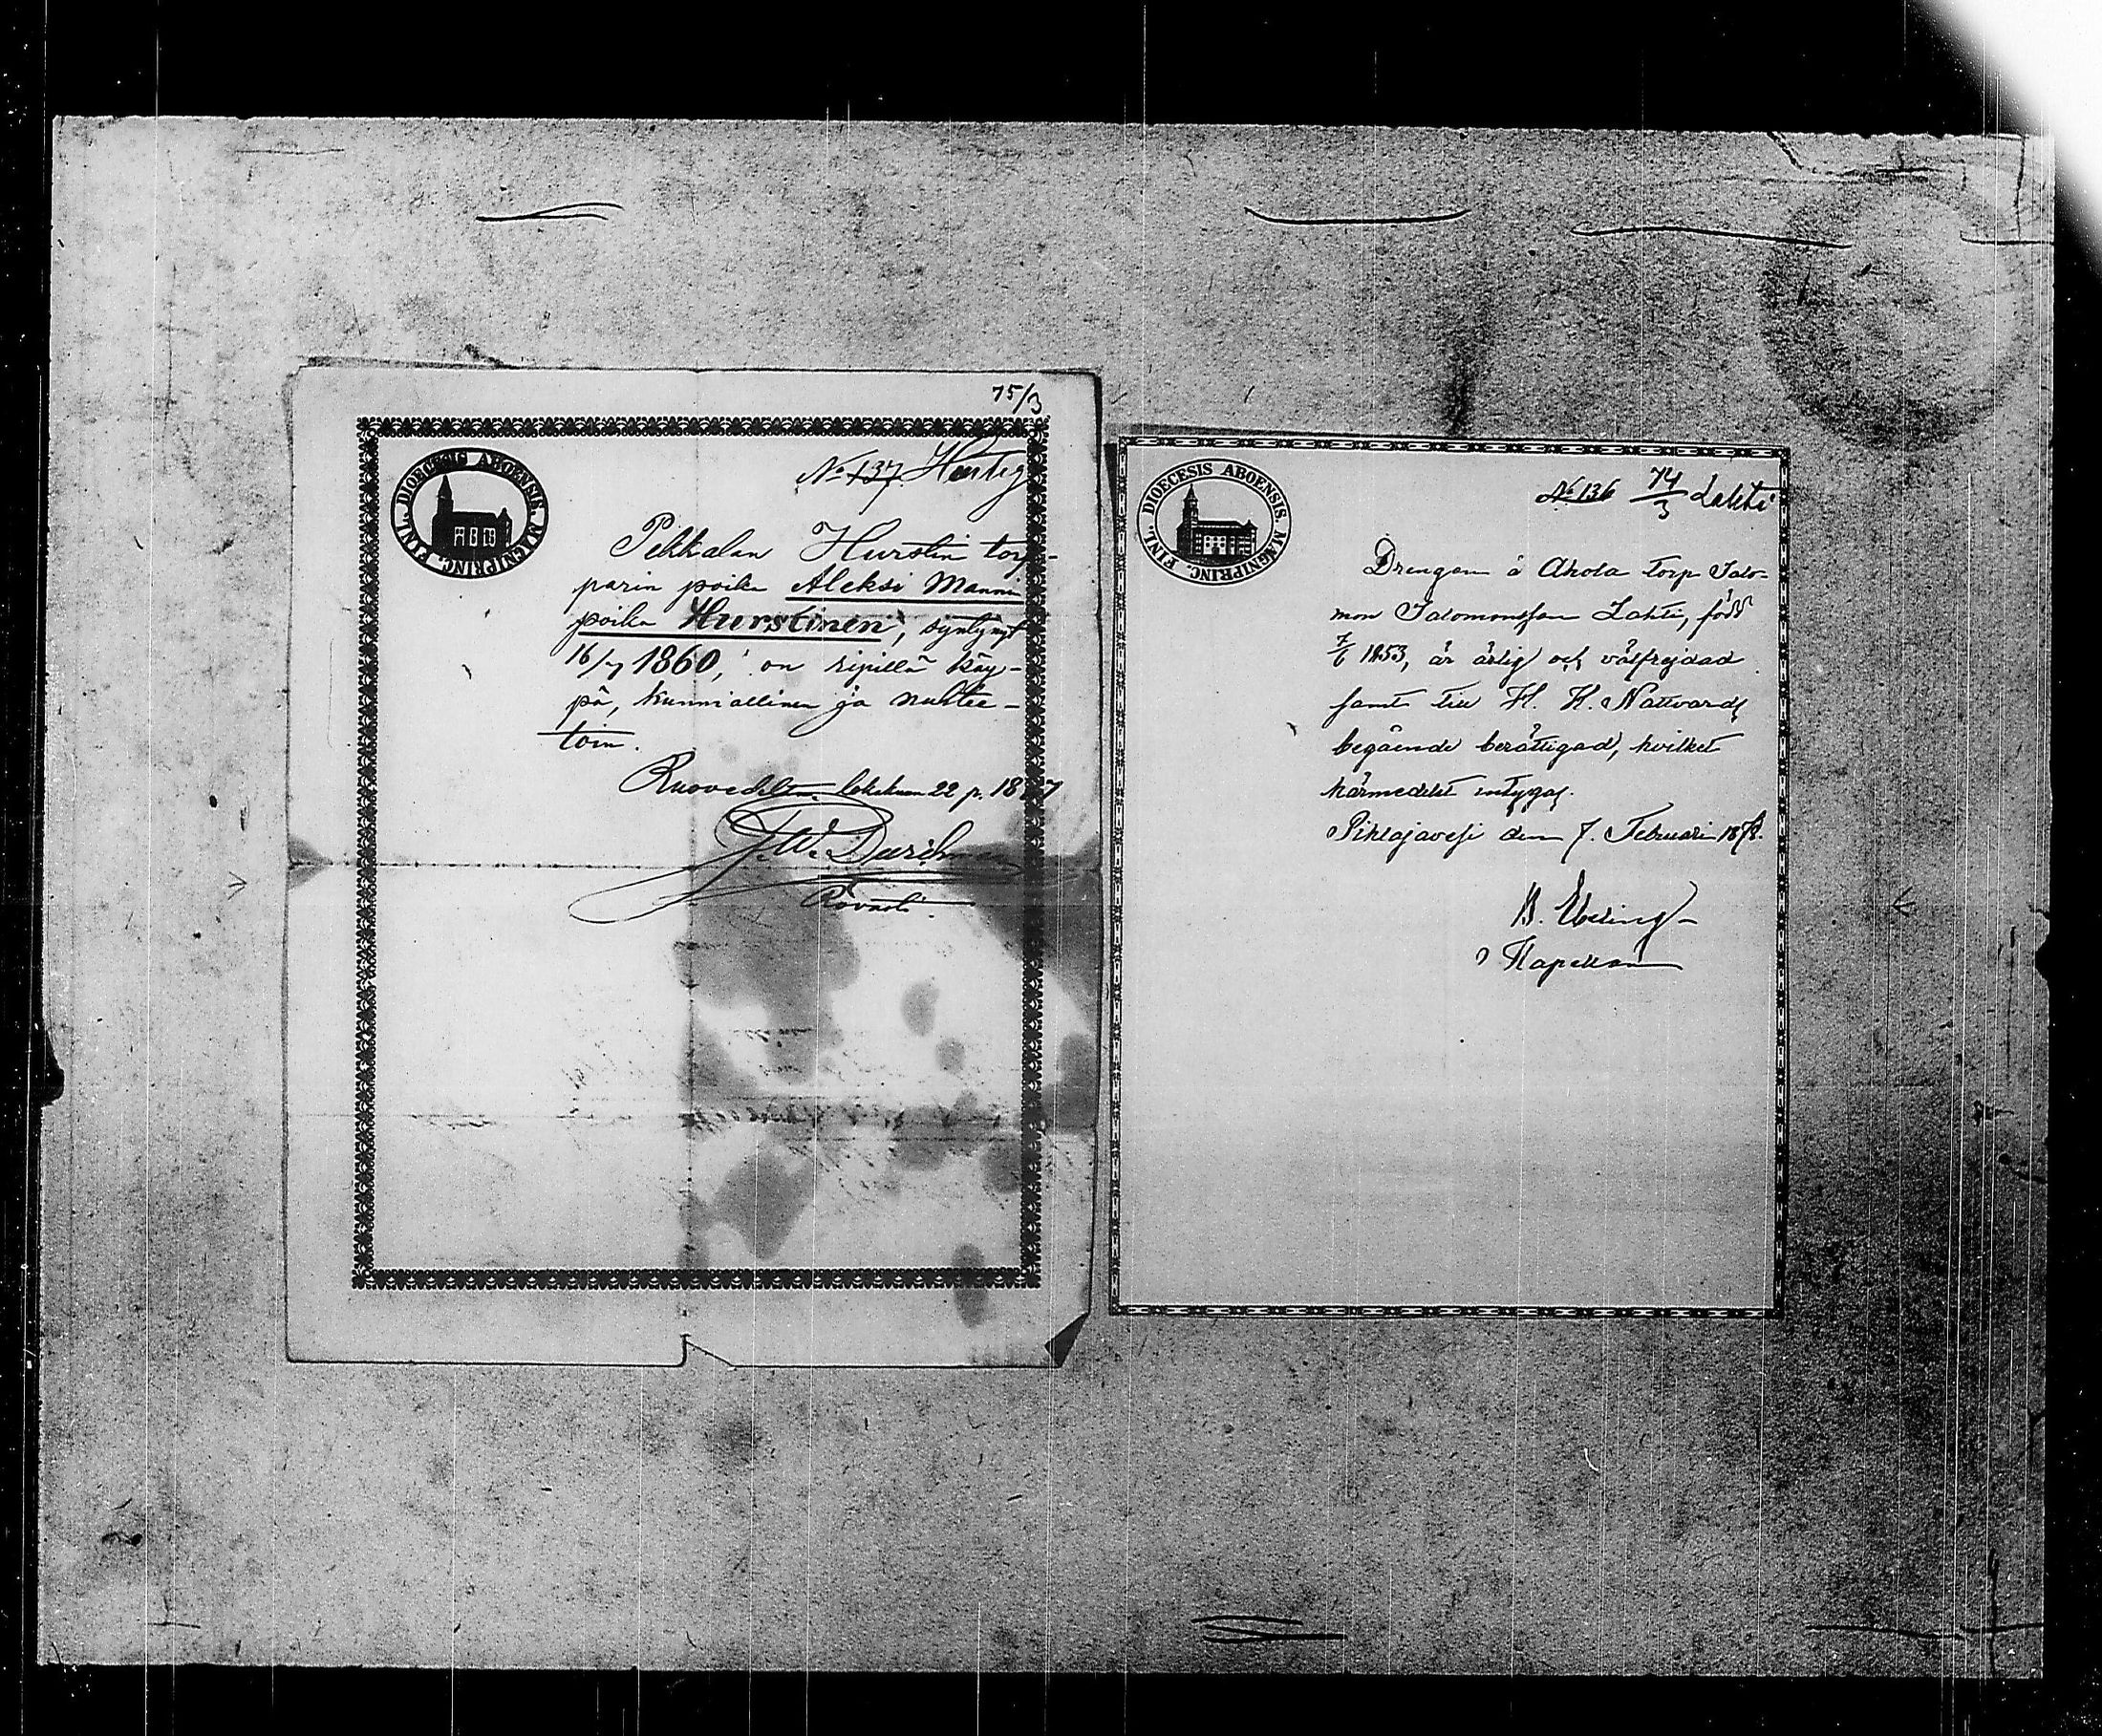 75/3
DIOECESIS ABOENSIS. MAGNIPRINC. FINL.
ABO
No 137
Pekkalan Hurstin torp-
parin poika Aleksi Mannin
poika Hurstinen, syntynyt
16/7 1860, on ripillä käy-
pä, kunniallinen ja nuhtee-
toin.
Ruovedellä lokakuun 22 p. 1877
Rovasti.
DIOECESIS ABOENSIS. MAGNIPRINC. FINL.
No 136 74/3 Lahti
Drengen å Ahola torp Salo-
mon Salomonsson Lahti, född
7/6 1853, är ärlig och välfrejdad
samt till H. H. Nattvards
begående berättigad, hvilket
härmedelst intygas.
Pihlajavesi den 7. Februari 1878.
Kapellan